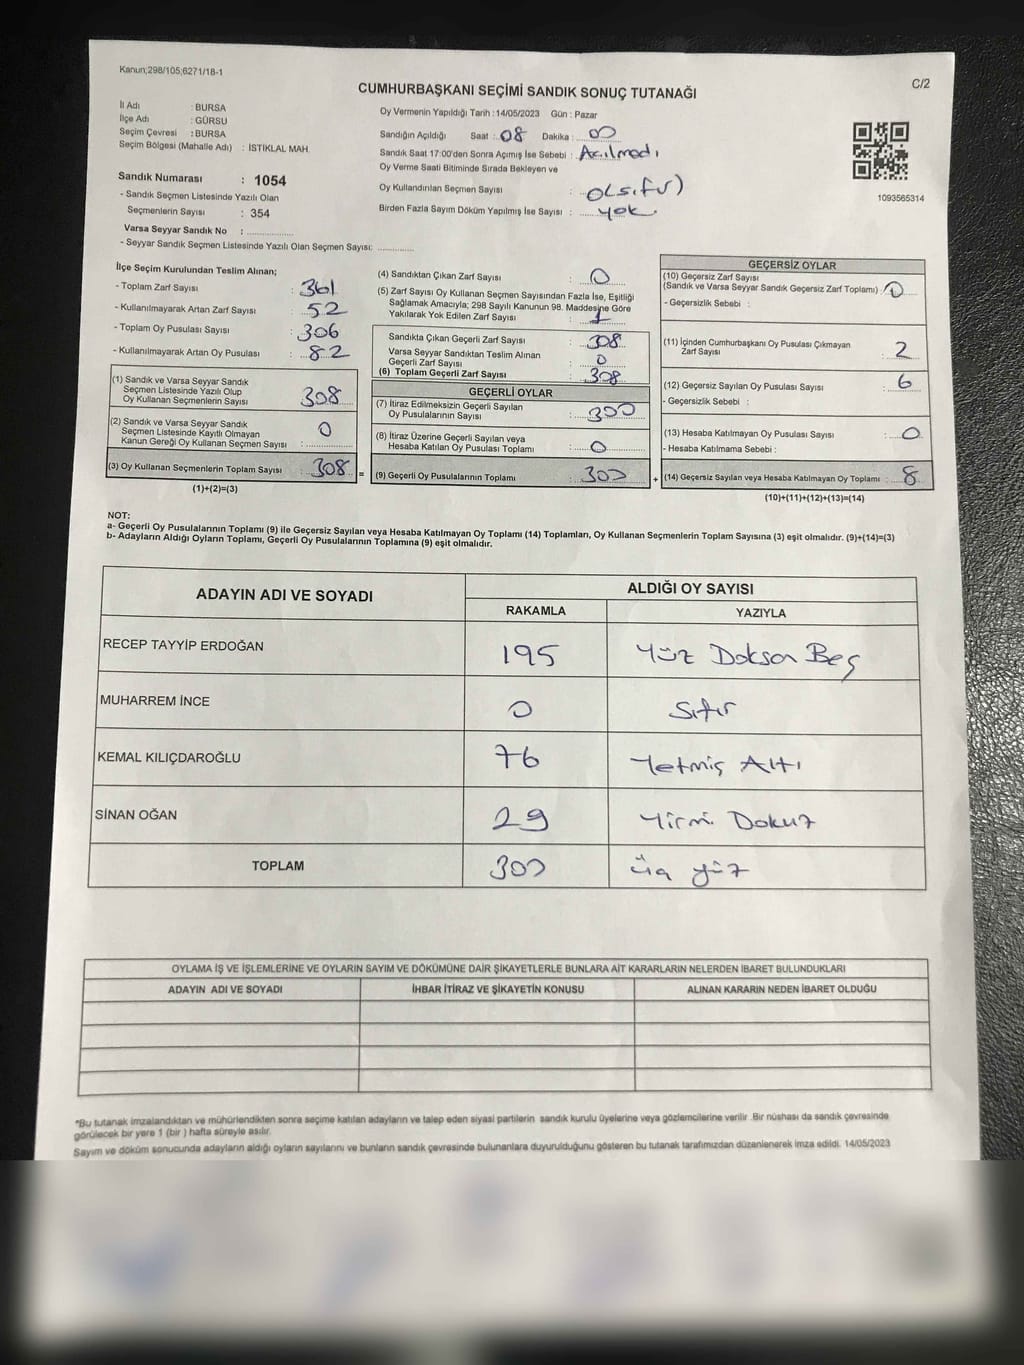 Kanun;298/105;6271/18-1
C/2
CUMHURBAŞKANI SEÇİMİ SANDIK SONUÇ TUTANAĞI
İl Adı : BURSA
İlçe Adı : GÜRSU
Seçim Çevresi : BURSA
Seçim Bölgesi (Mahalle Adı) : İSTİKLAL MAH.
Sandık Numarası : 1054
- Sandık Seçmen Listesinde Yazılı Olan
Seçmenlerin Sayısı : 354
Varsa Seyyar Sandık No :
- Seyyar Sandık Seçmen Listesinde Yazılı Olan Seçmen Sayısı:
Oy Vermenin Yapıldığı Tarih :14/05/2023 Gün : Pazar
Sandığın Açıldığı Saat : 08 Dakika : 00
Sandık Saat 17:00'den Sonra Açımış İse Sebebi : Açılmadı
Oy Verme Saati Bitiminde Sırada Bekleyen ve
Oy Kullandırılan Seçmen Sayısı : 0(sıfır)
Birden Fazla Sayım Döküm Yapılmış İse Sayısı : yok
1093565314
İlçe Seçim Kurulundan Teslim Alınan;
- Toplam Zarf Sayısı : 361
- Kullanılmayarak Artan Zarf Sayısı : 52
- Toplam Oy Pusulası Sayısı : 306
- Kullanılmayarak Artan Oy Pusulası : 82
(1) Sandık ve Varsa Seyyar Sandık
Seçmen Listesinde Yazılı Olup
Oy Kullanan Seçmenlerin Sayısı 308
(2) Sandık ve Varsa Seyyar Sandık
Seçmen Listesinde Kayıtlı Olmayan
Kanun Gereği Oy Kullanan Seçmen Sayısı : 0
(3) Oy Kullanan Seçmenlerin Toplam Sayısı : 308
(1)+(2)=(3)
(4) Sandıktan Çıkan Zarf Sayısı : 0
(5) Zarf Sayısı Oy Kullanan Seçmen Sayısından Fazla İse, Eşitliği
Sağlamak Amacıyla; 298 Sayılı Kanunun 98. Maddesine Göre
Yakılarak Yok Edilen Zarf Sayısı : 1
Sandıkta Çıkan Geçerli Zarf Sayısı : 308
Varsa Seyyar Sandıktan Teslim Alınan
Geçerli Zarf Sayısı : 0
(6) Toplam Geçerli Zarf Sayısı : 308
GEÇERLİ OYLAR
(7) İtiraz Edilmeksizin Geçerli Sayılan
Oy Pusulalarının Sayısı : 300
(8) İtiraz Üzerine Geçerli Sayılan veya
Hesaba Katılan Oy Pusulası Toplamı : 0
= (9) Geçerli Oy Pusulalarının Toplamı : 300
GEÇERSİZ OYLAR
(10) Geçersiz Zarf Sayısı
(Sandık ve Varsa Seyyar Sandık Geçersiz Zarf Toplamı) : 0
- Geçersizlik Sebebi :
(11) İçinden Cumhurbaşkanı Oy Pusulası Çıkmayan
Zarf Sayısı : 2
(12) Geçersiz Sayılan Oy Pusulası Sayısı : 6
- Geçersizlik Sebebi :
(13) Hesaba Katılmayan Oy Pusulası Sayısı : 0
- Hesaba Katılmama Sebebi :
+ (14) Geçersiz Sayılan veya Hesaba Katılmayan Oy Toplamı : 8
(10)+(11)+(12)+(13)=(14)
NOT:
a- Geçerli Oy Pusulalarının Toplamı (9) ile Geçersiz Sayılan veya Hesaba Katılmayan Oy Toplamı (14) Toplamları, Oy Kullanan Seçmenlerin Toplam Sayısına (3) eşit olmalıdır. (9)+(14)=(3)
b- Adayların Aldığı Oyların Toplamı, Geçerli Oy Pusulalarının Toplamına (9) eşit olmalıdır.
ADAYIN ADI VE SOYADI ALDIĞI OY SAYISI
RAKAMLA YAZIYLA
RECEP TAYYİP ERDOĞAN 195 Yüz Doksan Beş
MUHARREM İNCE 0 Sıfır
KEMAL KILIÇDAROĞLU 76 Yetmiş Altı
SİNAN OĞAN 29 Yirmi Dokuz
TOPLAM 300 üç yüz
OYLAMA İŞ VE İŞLEMLERİNE VE OYLARIN SAYIM VE DÖKÜMÜNE DAİR ŞİKAYETLERLE BUNLARA AİT KARARLARIN NELERDEN İBARET BULUNDUKLARI
ADAYIN ADI VE SOYADI İHBAR İTİRAZ VE ŞİKAYETİN KONUSU ALINAN KARARIN NEDEN İBARET OLDUĞU
*Bu tutanak imzalandıktan ve mühürlendikten sonra seçime katılan adayların ve talep eden siyasi partilerin sandık kurulu üyelerine veya gözlemcilerine verilir .Bir nüshası da sandık çevresinde
görülecek bir yere 1 (bir ) hafta süreyle asılır.
Sayım ve döküm sonucunda adayların aldığı oyların sayılarını ve bunların sandık çevresinde bulunanlara duyurulduğunu gösteren bu tutanak tarafımızdan düzenlenerek imza edildi. 14/05/2023